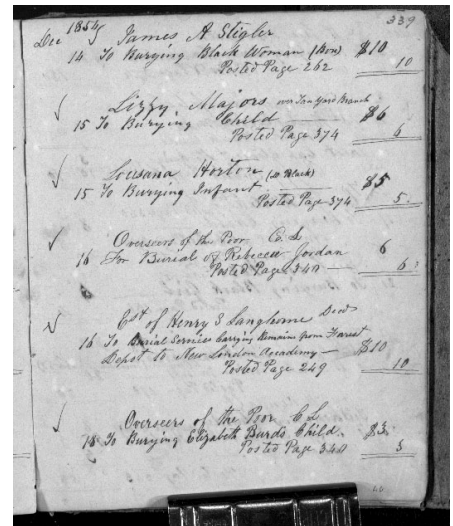 339
Dec 1854
James A Stigler
14 To Burying Black Woman (Bow) $10
Posted Page 262 10
Lizzy Majors over Tanyard Branch
15 To Burying Child $6
Posted Page 374 6
Lousana Horton (Black)
15 To Burying Infant $5
Posted Page 374 5
Overseers of the Poor C. L.
16 For Burial of Rebecca Jordan 6
Posted Page 340 6
Est of Henry S Langhorne Decd
16 To Burial Services Carrying Remains from Forest
Depot to New London Academy — $10
Posted Page 249 10
Overseers of the Poor C L
18 To Burying Elizabeth Burds Child. $3
Posted Page 340 3